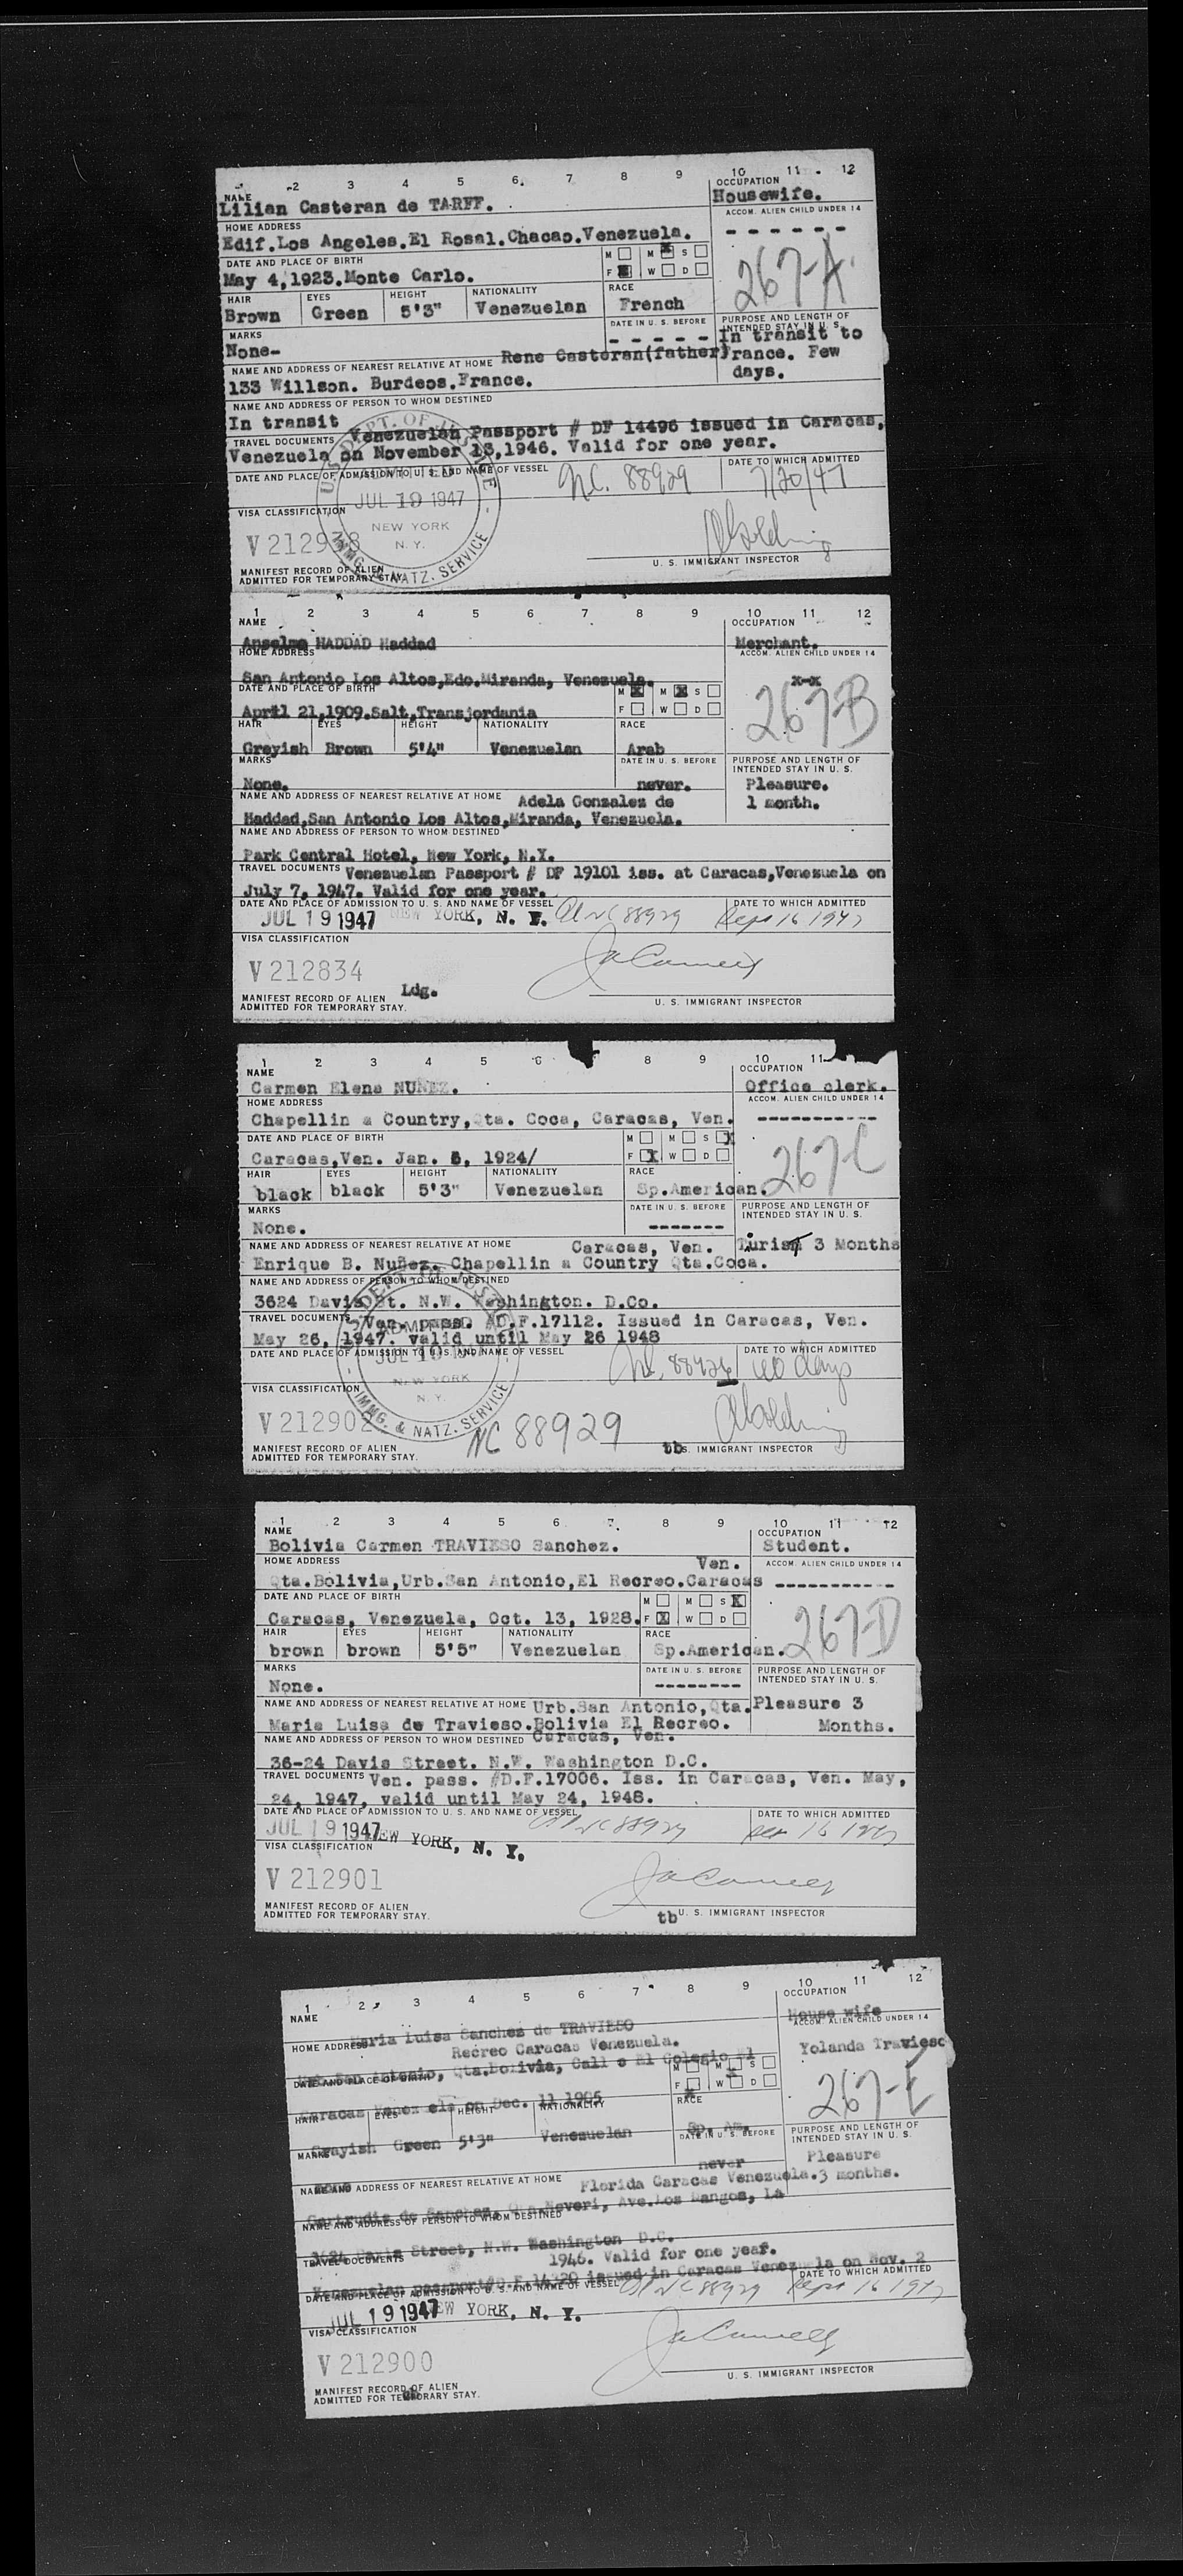 1 2 3 4 5 6 7 8 9 10 11 12
NAME OCCUPATION
Lilian Casteran de TARFF. Housewife.
HOME ADDRESS ACCOM. ALIEN CHILD UNDER 14
Edif.Los Angeles.El Rosal.Chacao.Venezuela. - - - - - -
DATE AND PLACE OF BIRTH M M X S
May 4,1923.Monte Carlo. F X W D 267-A
HAIR EYES HEIGHT NATIONALITY RACE
Brown Green 5'3" Venezuelan French
MARKS DATE IN U. S. BEFORE PURPOSE AND LENGTH OF INTENDED STAY IN U. S.
None- - - - - - In transit to
NAME AND ADDRESS OF NEAREST RELATIVE AT HOME Rene Casteran(father) France. Few
133 Willson. Burdeos.France. days.
NAME AND ADDRESS OF PERSON TO WHOM DESTINED
In transit
TRAVEL DOCUMENTS Venezuelan Passport # DF 14496 issued in Caracas,
Venezuela on November 13,1946. Valid for one year.
DATE AND PLACE OF ADMISSION TO U. S. AND NAME OF VESSEL NC. 88929 DATE TO WHICH ADMITTED
7/20/47
U. S. DEPT. OF JUSTICE
ADMITTED
JUL 19 1947
NEW YORK
N. Y.
IMMG. & NATZ. SERVICE
VISA CLASSIFICATION
V 212938
U. S. IMMIGRANT INSPECTOR
MANIFEST RECORD OF ALIEN
ADMITTED FOR TEMPORARY STAY.
1 2 3 4 5 6 7 8 9 10 11 12
NAME OCCUPATION
Anselmo HADDAD Haddad Merchant.
HOME ADDRESS ACCOM. ALIEN CHILD UNDER 14
San Antonio Los Altos,Edo.Miranda, Venezuela. x-x
DATE AND PLACE OF BIRTH M X M X S
April 21,1909.Salt,Transjordania F W D 267-B
HAIR EYES HEIGHT NATIONALITY RACE
Greyish Brown 5'4" Venezuelan Arab
MARKS DATE IN U. S. BEFORE PURPOSE AND LENGTH OF INTENDED STAY IN U. S.
None. never. Pleasure.
NAME AND ADDRESS OF NEAREST RELATIVE AT HOME Adela Gonzales de 1 month.
Haddad,San Antonio Los Altos,Miranda, Venezuela.
NAME AND ADDRESS OF PERSON TO WHOM DESTINED
Park Central Hotel, New York, N.Y.
TRAVEL DOCUMENTS Venezuelan Passport # DF 19101 iss. at Caracas,Venezuela on
July 7, 1947. Valid for one year.
DATE AND PLACE OF ADMISSION TO U. S. AND NAME OF VESSEL DATE TO WHICH ADMITTED
JUL 19 1947 NEW YORK, N. Y. NC 88929 Sept 16 1947
VISA CLASSIFICATION
V 212834
Ldg.
MANIFEST RECORD OF ALIEN U. S. IMMIGRANT INSPECTOR
ADMITTED FOR TEMPORARY STAY.
1 2 3 4 5 6 8 9 10 11
NAME OCCUPATION
Carmen Elena NUÑEZ. Office clerk.
HOME ADDRESS ACCOM. ALIEN CHILD UNDER 14
Chapellin a Country,Qta. Coca, Caracas, Ven. -----------
DATE AND PLACE OF BIRTH M M S X
Caracas,Ven. Jan. 5, 1924/ F X W D 267-C
HAIR EYES HEIGHT NATIONALITY RACE
black black 5'3" Venezuelan Sp.American.
MARKS DATE IN U. S. BEFORE PURPOSE AND LENGTH OF INTENDED STAY IN U. S.
None. -------
NAME AND ADDRESS OF NEAREST RELATIVE AT HOME Caracas, Ven. Turist 3 Months
Enrique B. Nuñez. Chapellin a Country Qta.Coca.
NAME AND ADDRESS OF PERSON TO WHOM DESTINED
3624 Davis St. N.W. Washington. D.Co.
TRAVEL DOCUMENTS Ven. pass. #D.F.17112. Issued in Caracas, Ven.
May 26, 1947. valid until May 26 1948
DATE AND PLACE OF ADMISSION TO U. S. AND NAME OF VESSEL DATE TO WHICH ADMITTED
NC. 88929 60 days
ADMITTED
JUL 19 1947
NEW YORK
N. Y.
IMMG. & NATZ. SERVICE
VISA CLASSIFICATION
V 212902 NC 88929
MANIFEST RECORD OF ALIEN tb U. S. IMMIGRANT INSPECTOR
ADMITTED FOR TEMPORARY STAY.
1 2 3 4 5 6 7 8 9 10 11 12
NAME OCCUPATION
Bolivia Carmen TRAVIESO Sanchez. Student.
HOME ADDRESS Ven. ACCOM. ALIEN CHILD UNDER 14
Qta.Bolivia,Urb.San Antonio,El Recreo.Caracas -----------
DATE AND PLACE OF BIRTH M M S X
Caracas, Venezuela, Oct. 13, 1928. F X W D 267-D
HAIR EYES HEIGHT NATIONALITY RACE
brown brown 5'5" Venezuelan Sp.American.
MARKS DATE IN U. S. BEFORE PURPOSE AND LENGTH OF INTENDED STAY IN U. S.
None. --------
NAME AND ADDRESS OF NEAREST RELATIVE AT HOME Urb.San Antonio,Qta. Pleasure 3
Maria Luisa de Travieso.Bolivia El Recreo. Months.
NAME AND ADDRESS OF PERSON TO WHOM DESTINED Caracas, Ven.
36-24 Davis Street. N.W. Washington D.C.
TRAVEL DOCUMENTS Ven. pass. #D.F.17006. Iss. in Caracas, Ven. May,
24, 1947, valid until May 24, 1948.
DATE AND PLACE OF ADMISSION TO U. S. AND NAME OF VESSEL DATE TO WHICH ADMITTED
JUL 19 1947 NEW YORK, N. Y. NC 88929 Sept 16 1947
VISA CLASSIFICATION
V 212901
MANIFEST RECORD OF ALIEN tb U. S. IMMIGRANT INSPECTOR
ADMITTED FOR TEMPORARY STAY.
1 2 3 4 5 6 7 8 9 10 11 12
NAME OCCUPATION
Maria Luisa Sanchez de TRAVIESO House wife
HOME ADDRESS Recreo Caracas Venezuela. ACCOM. ALIEN CHILD UNDER 14
Antonio, Qta.Bolivia, Call e El Colegio El Yolanda Travieso
DATE AND PLACE OF BIRTH M M S
Caracas Venez ela on Dec. 11 1905 F W D 267-E
HAIR EYES HEIGHT NATIONALITY RACE
Grayish Green 5'3" Venezuelan Sp. Am.
MARKS DATE IN U. S. BEFORE PURPOSE AND LENGTH OF INTENDED STAY IN U. S.
never Pleasure
NAME AND ADDRESS OF NEAREST RELATIVE AT HOME Florida Caracas Venezuela. 3 months.
Gertrudis de Sanchez, Qta.Neveri, Ave.Los Mangos, La
NAME AND ADDRESS OF PERSON TO WHOM DESTINED
3624 Davis Street, N.W. Washington D.C.
TRAVEL DOCUMENTS 1946. Valid for one year.
Venezuelan passport issued in Caracas Venezuela on Nov. 2
DATE AND PLACE OF ADMISSION TO U. S. AND NAME OF VESSEL DATE TO WHICH ADMITTED
JUL 19 1947 NEW YORK, N. Y. NC 88929 Sept 16 1947
VISA CLASSIFICATION
V 212900
U. S. IMMIGRANT INSPECTOR
MANIFEST RECORD OF ALIEN
ADMITTED FOR TEMPORARY STAY.